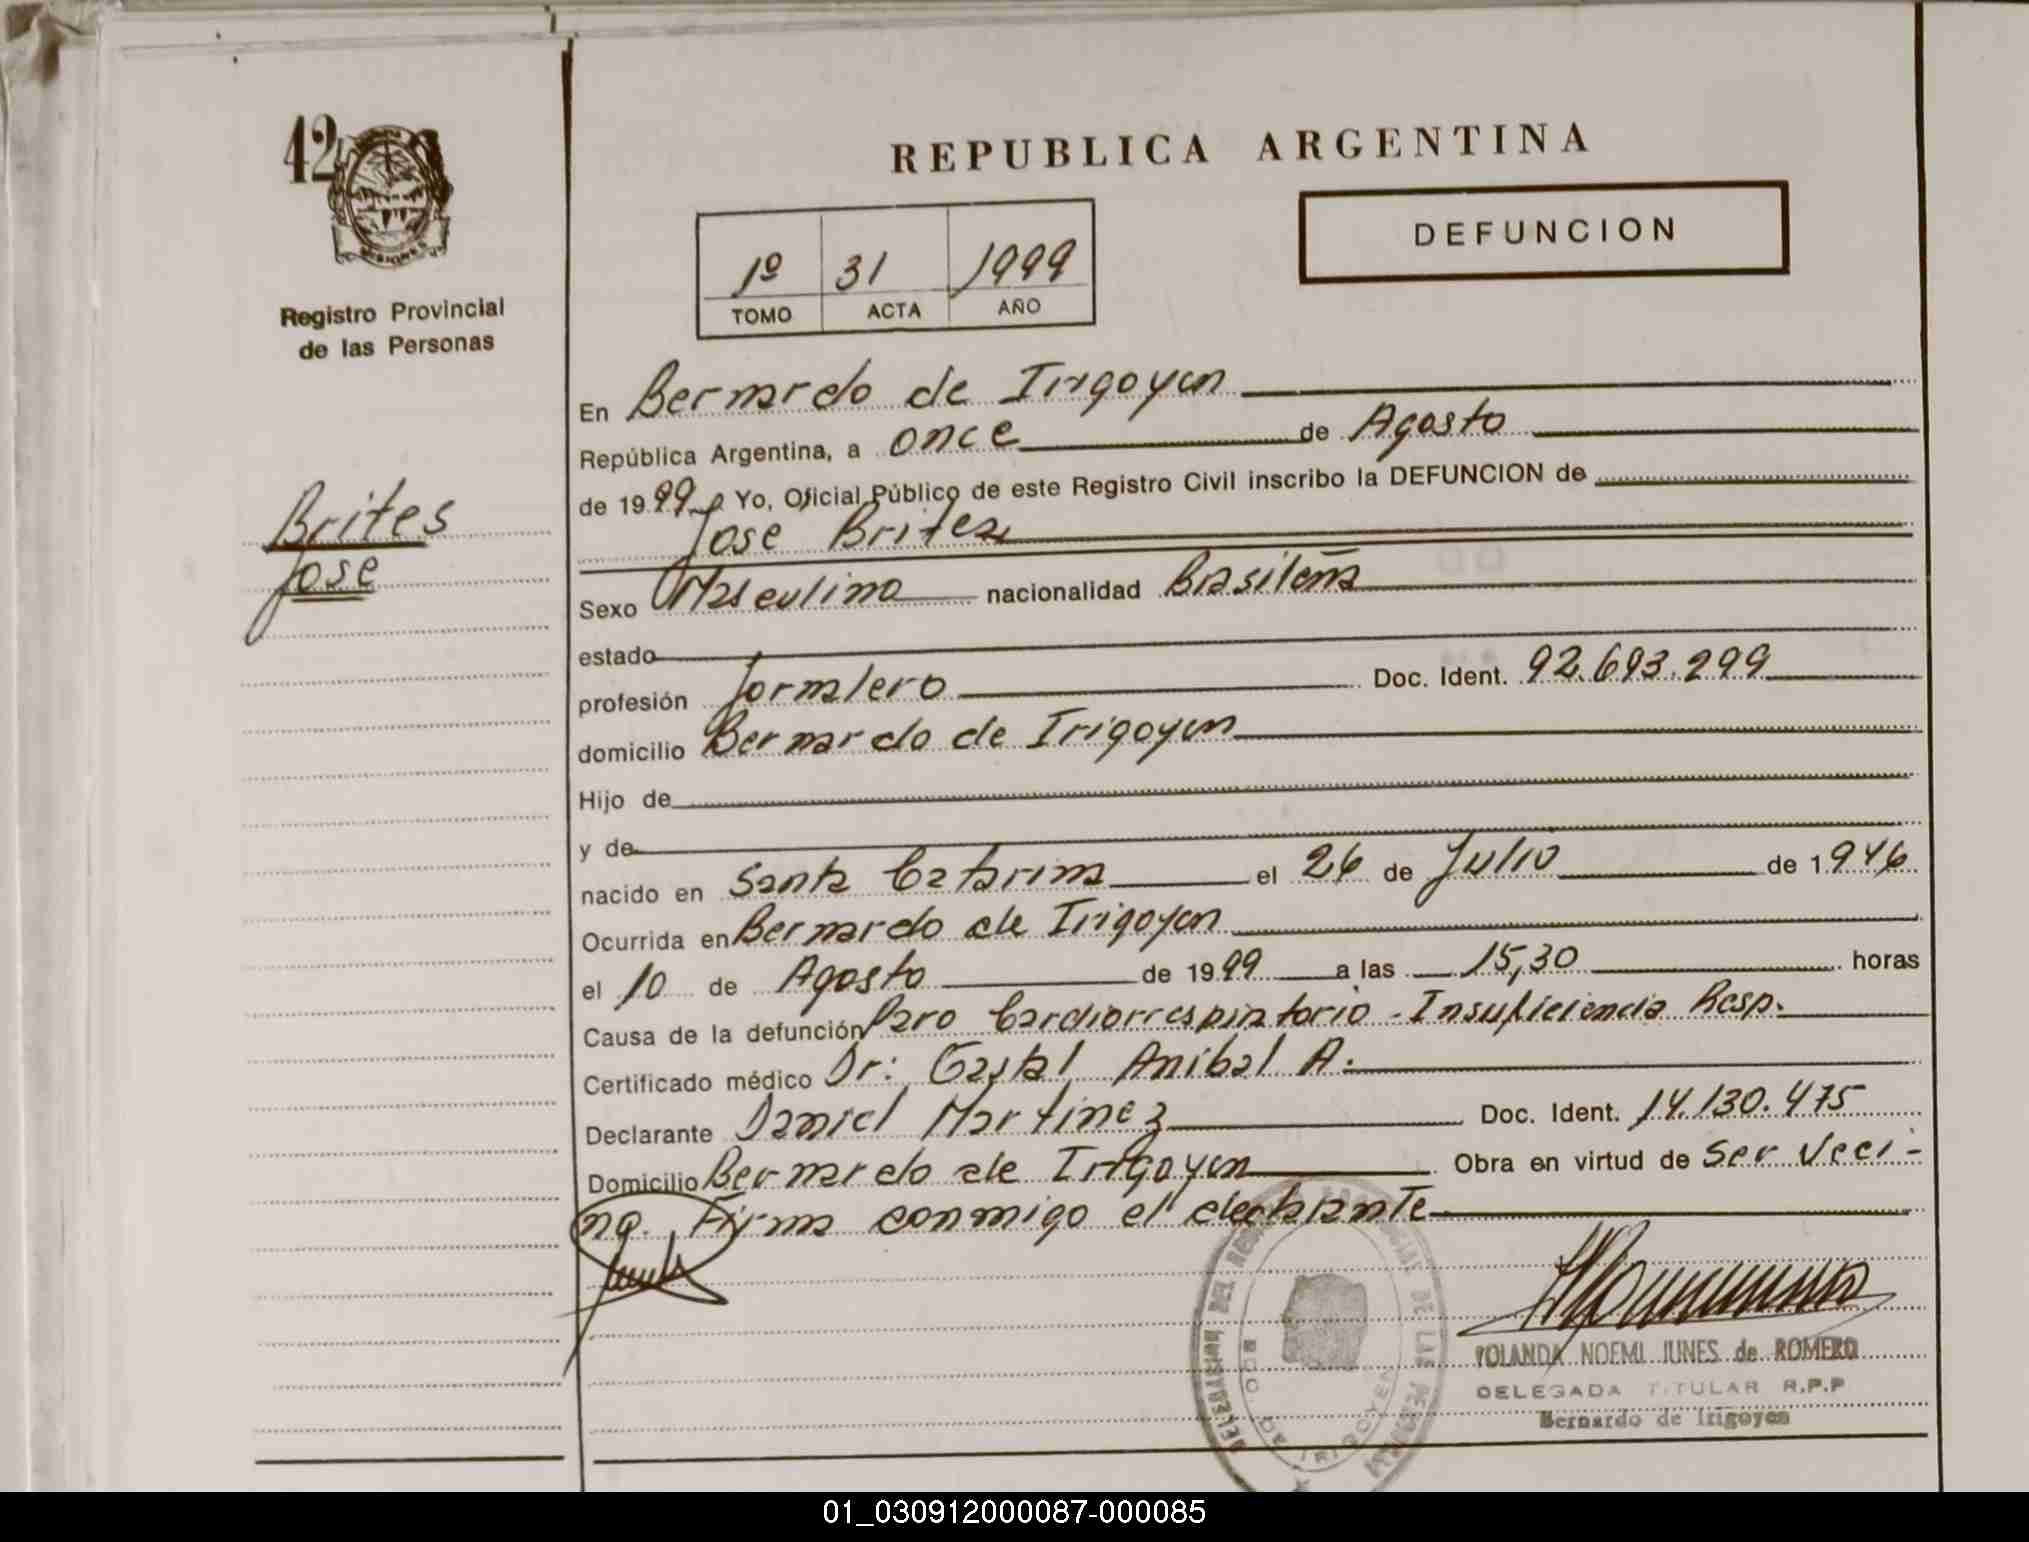 42
MISIONES
Registro Provincial
de las Personas
Brites
Jose
REPUBLICA ARGENTINA
DEFUNCION
1º 31 1999
TOMO ACTA AÑO
En Bernardo de Irigoyen
República Argentina, a once de Agosto
de 1999 Yo, Oficial Público de este Registro Civil inscribo la DEFUNCION de
Jose Brites
Sexo Masculino nacionalidad Brasileña
estado
profesión Jornalero Doc. Ident. 92.693.299
domicilio Bernardo de Irigoyen
Hijo de
y de
nacido en Santa Catarina el 26 de Julio de 1946
Ocurrida en Bernardo de Irigoyen
el 10 de Agosto de 1999 a las 15,30 horas
Causa de la defunción Paro Cardiorrespiratorio - Insuficiencia Resp.
Certificado médico Dr: Anibal A.
Declarante Daniel Martinez Doc. Ident. 14.130.475
Domicilio Bernardo de Irigoyen Obra en virtud de ser veci-
no. Firma conmigo el declarante
YOLANDA NOEMI JUNES de ROMERO
DELEGADA TITULAR R.P.P
Bernardo de Irigoyen
01_030912000087-000085